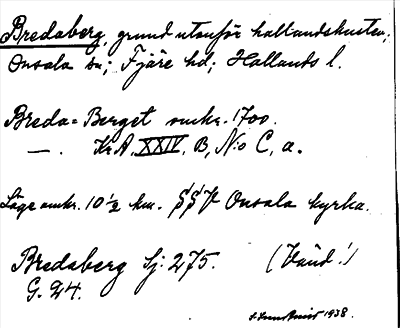 Bredaberg, grund utanför hallandskusten,
Onsala sn; Fjäre hd; Hallands l.
Breda=Berget omkr. 1700.
—. KrA. XXIV, B, N:o C, a.
Läge omkr. 10 ½ km. SSV Onsala kyrka.
Bredaberg Sj. 275. (Vänd!)
G. 24.
1938.